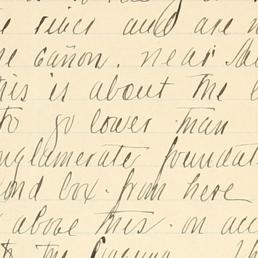 e river and are
e cañon. near
his is about the
to go lower than
nglomerate foundat
and box. from here
above this. on acc
to the Laguna